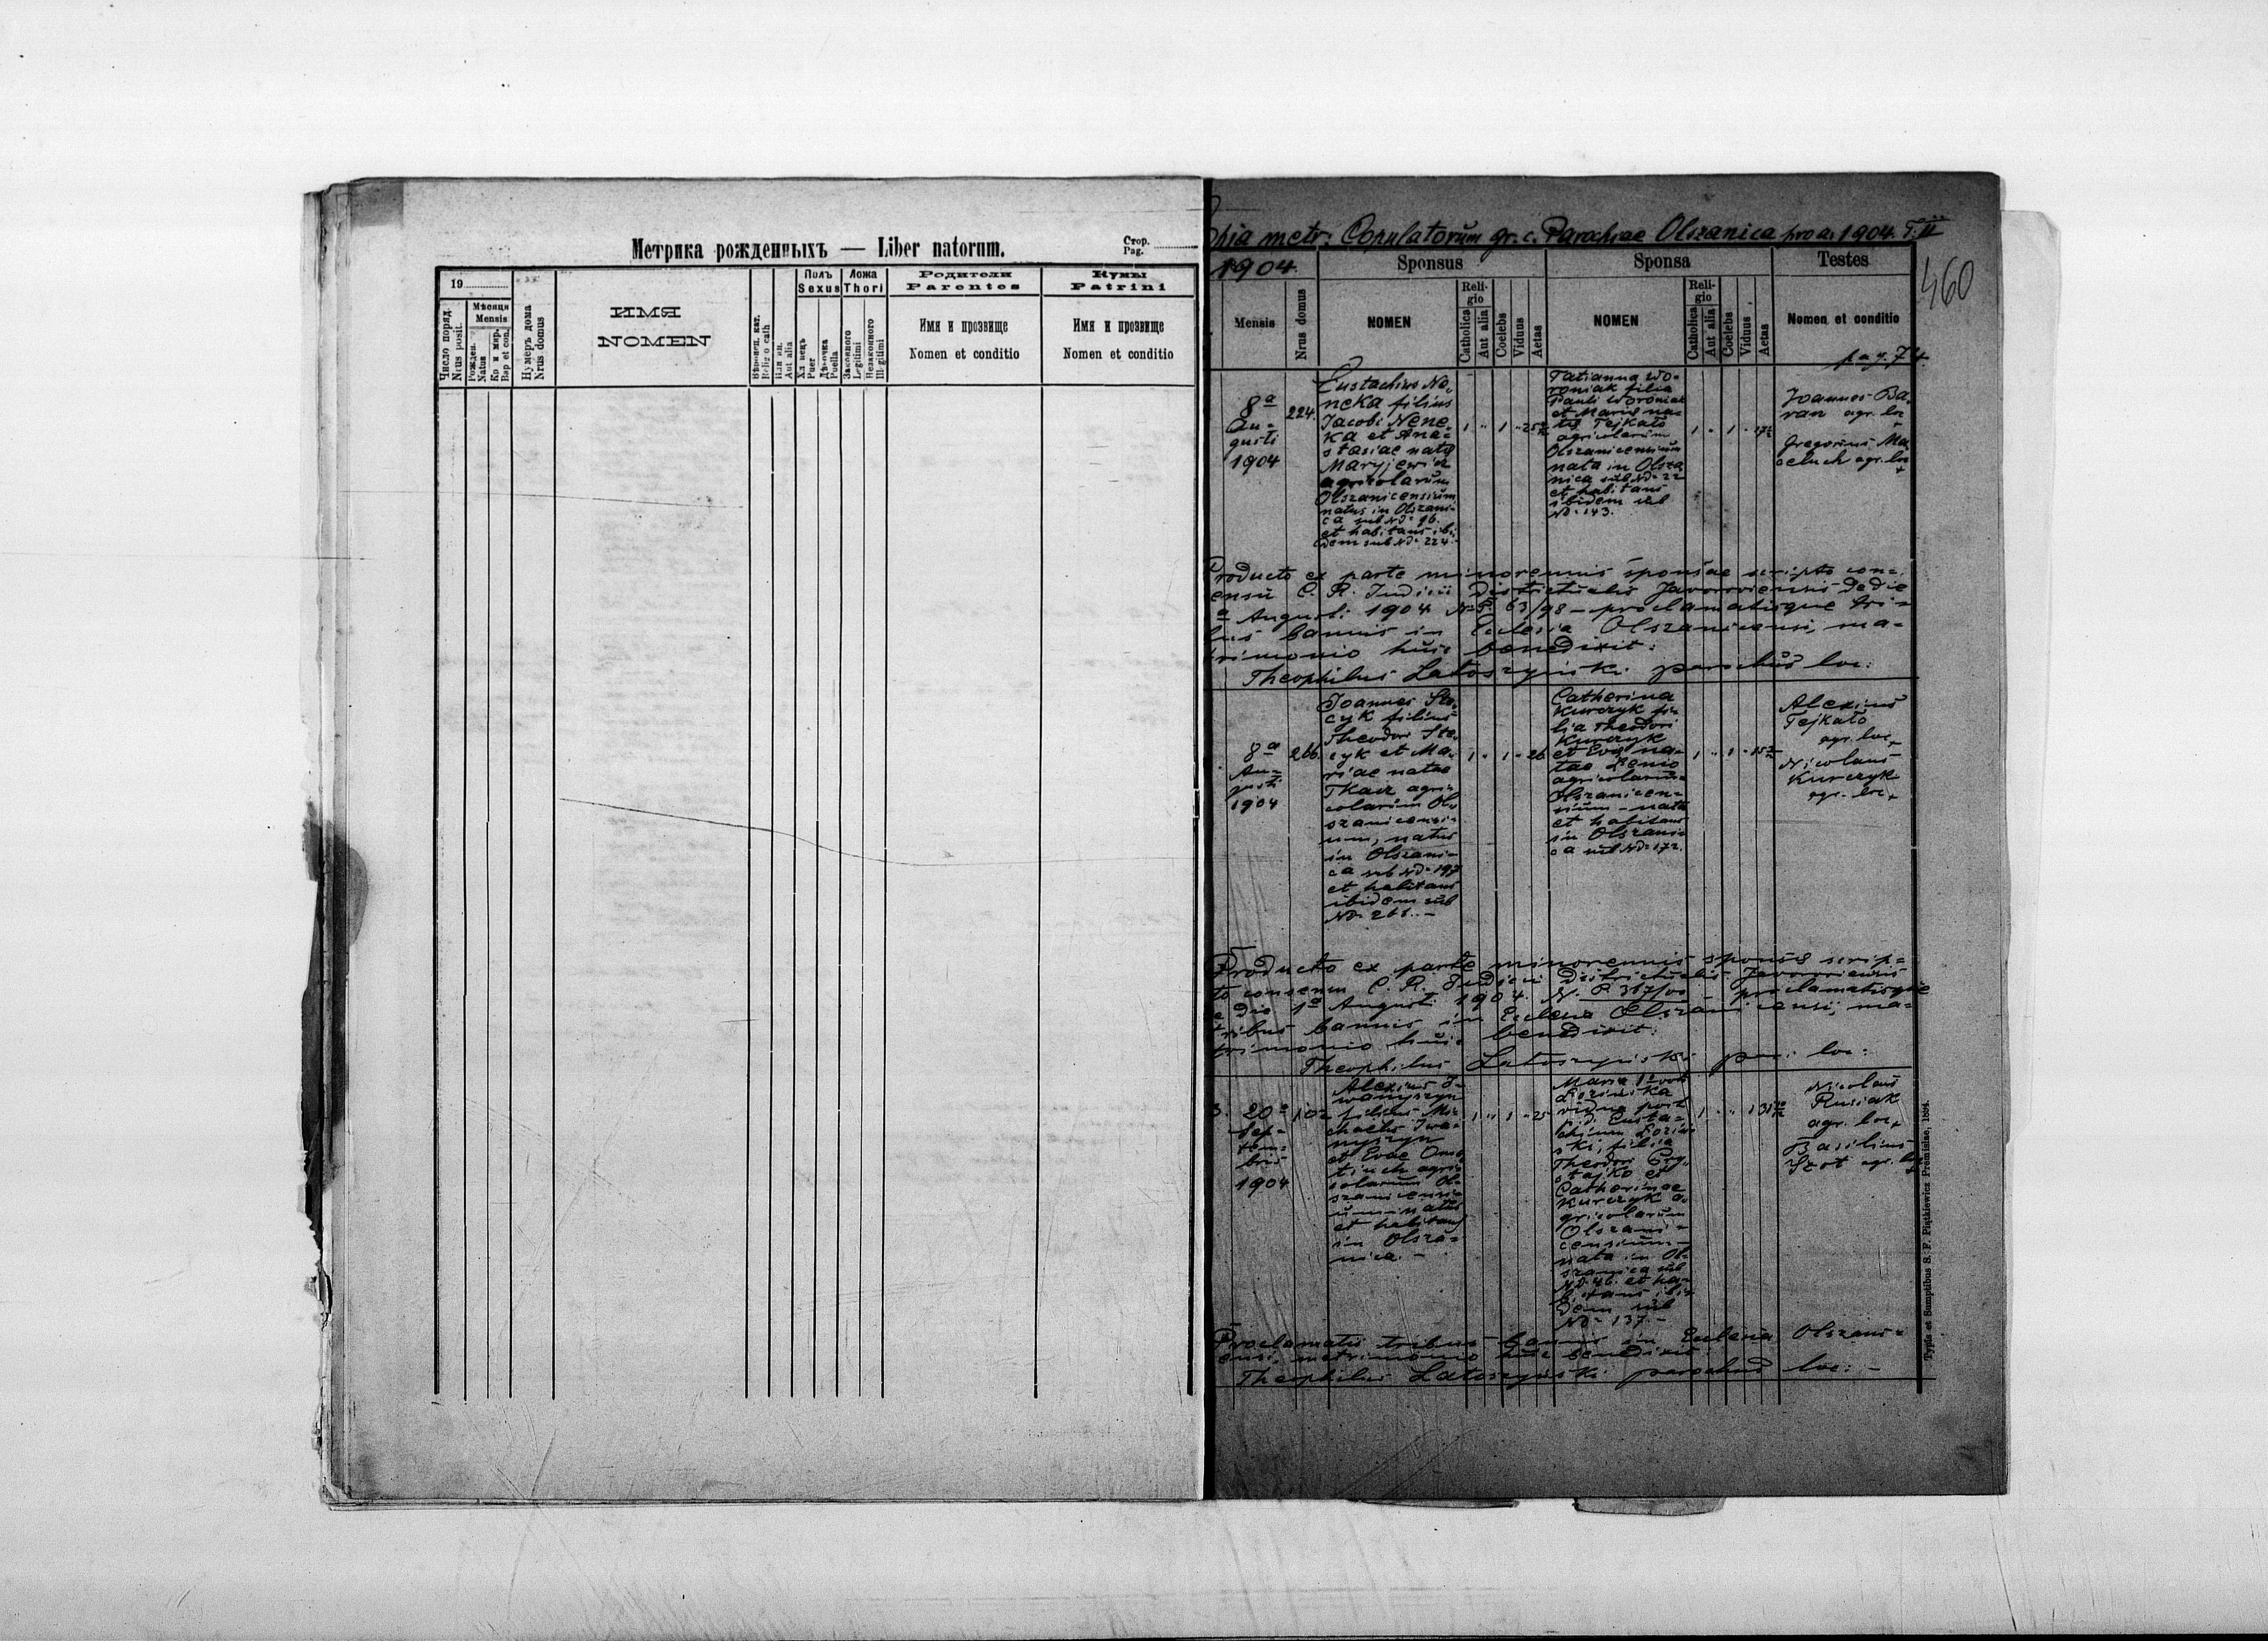 Метрика рожденныхъ — Liber natorum.
Стор.
Pag.
19
Число поряд.
Nrus posit.
Мѣсяця
Mensis
Рожден.
Natus
Кр и мир.
Bap et con.
Нумеръ дома
Nrus domus
ИМЯ
NOMEN
Религ o cath
Aut alia
Полъ
Sexus
Puer
Дѣвочка
Puella
Ложа
Thori
Законного
Legitimi
Незаконного
Illegitimi
Родители
Parentes
Имя и прозвище
Nomen et conditio
Кумы
Patrini
Имя и прозвище
Nomen et conditio
metr. Copulatorum gr. c. Parochiae Olszanica pro a. 1904. T. II
460
1904.
Sponsus
Sponsa
Testes
Mensis
Nrus domus
NOMEN
Reli-
gio
Catholica
Aut alia
Coelebs
Viduus
Aetas
NOMEN
Reli-
gio
Catholica
Aut alia
Coelebs
Viduus
Aetas
Nomen et conditio
pag. 74.
8a
Au-
gusti
1904
224.
Eustachius Ne-
neka filius
Jacobi Nene-
ka et Ana-
stasiae natae
Maryjewicz
agricolarum
Olszanicensium
natus in Olszani-
ca sub Nd 96.
et habitans ibi-
dem sub Nd 224.
1 " 1 " 25
Tatianna Wo-
roniak filia
Pauli Woroniak
et Mariae na-
tae Tejkało
agricolarum
Olszanicensium
nata in Olsza
nica sub Nd 22
et habitans
ibidem sub
Nd 143.
1 " 1 " 17
Joannes Ba-
ran agr. loc
+
Gregorius Ma
celuch agr. loc
+
Producto ex parte minorennis sponsae scripto con-
ensu C. R. Judicii Districtualis Javoroviensis de die
Augusti 1904 63/98 - proclamatisque tri-
bus bannis in Eclesia Olszanicensi, ma-
trimonio huic benedixit:
Theophilus Latoszyński parochus loc:
8a
Au-
gusti
1904
266.
Joannes Ste-
cyk filius
Theodori Ste-
cyk et Ma-
riae natae
Tkacz agri-
colarum Ol-
szanicensi-
um, natus
in Olszani-
ca sub Nd 197
et habitans
ibidem sub
Nd 266. -
1 " 1 " 26
Catherina
Kurczyk fi-
lia Theodori
Kurczyk
et Evae na-
tae Demo
agricolarum
Olszanicen-
sium - nata
et habitans
in Olszani-
ca sub Nd 172.
1 " 1 "
Alexius
Tejkało
agr. loc
+
Nicolaus
Kurczyk
agr. loc
+
Producto ex parte minorennis sponsae scrip-
to consensu C. R. Judicii Districtualis Javoroviensis
de die 1a Augusti 1904. N. P. 317/00 - proclamatisque
tribus bannis in Eclesia Olszanicensi, ma-
trimonio huic benedixit:
Theophilus Latoszyński par: loc:
3.
20a
Sep-
tem-
bris
1904
102
Alexius I-
wanyszyn
filius Mi-
chaelis Iwa-
nyszyn
et Evae
agri-
colarum Ol-
szanicensi-
um - natus
et habitans
in Olsza-
nica. -
1 " 1 " 25
Maria 1o voto
vidua post
Eusta-
chium
ski, filia
Theodori
et
Catherinae
Kurczyk a-
gricolarum
Olszani-
censium -
nata in Ol-
szanica sub
Nd 46. et ha-
bitans ibi-
dem sub
Nd 137. -
1 " " 1 31
Nicolaus
Rusiak
agr. loc
+
Basilius
Szot agr. loc
Proclamatis tribus bannis in Eclesia Olszani-
censi, matrimonio huic benedixit
Theophilus Latoszyński parochus loc: -
Typis et Sumptibus S. F. Piątkiewicz Premisliae, 1884.